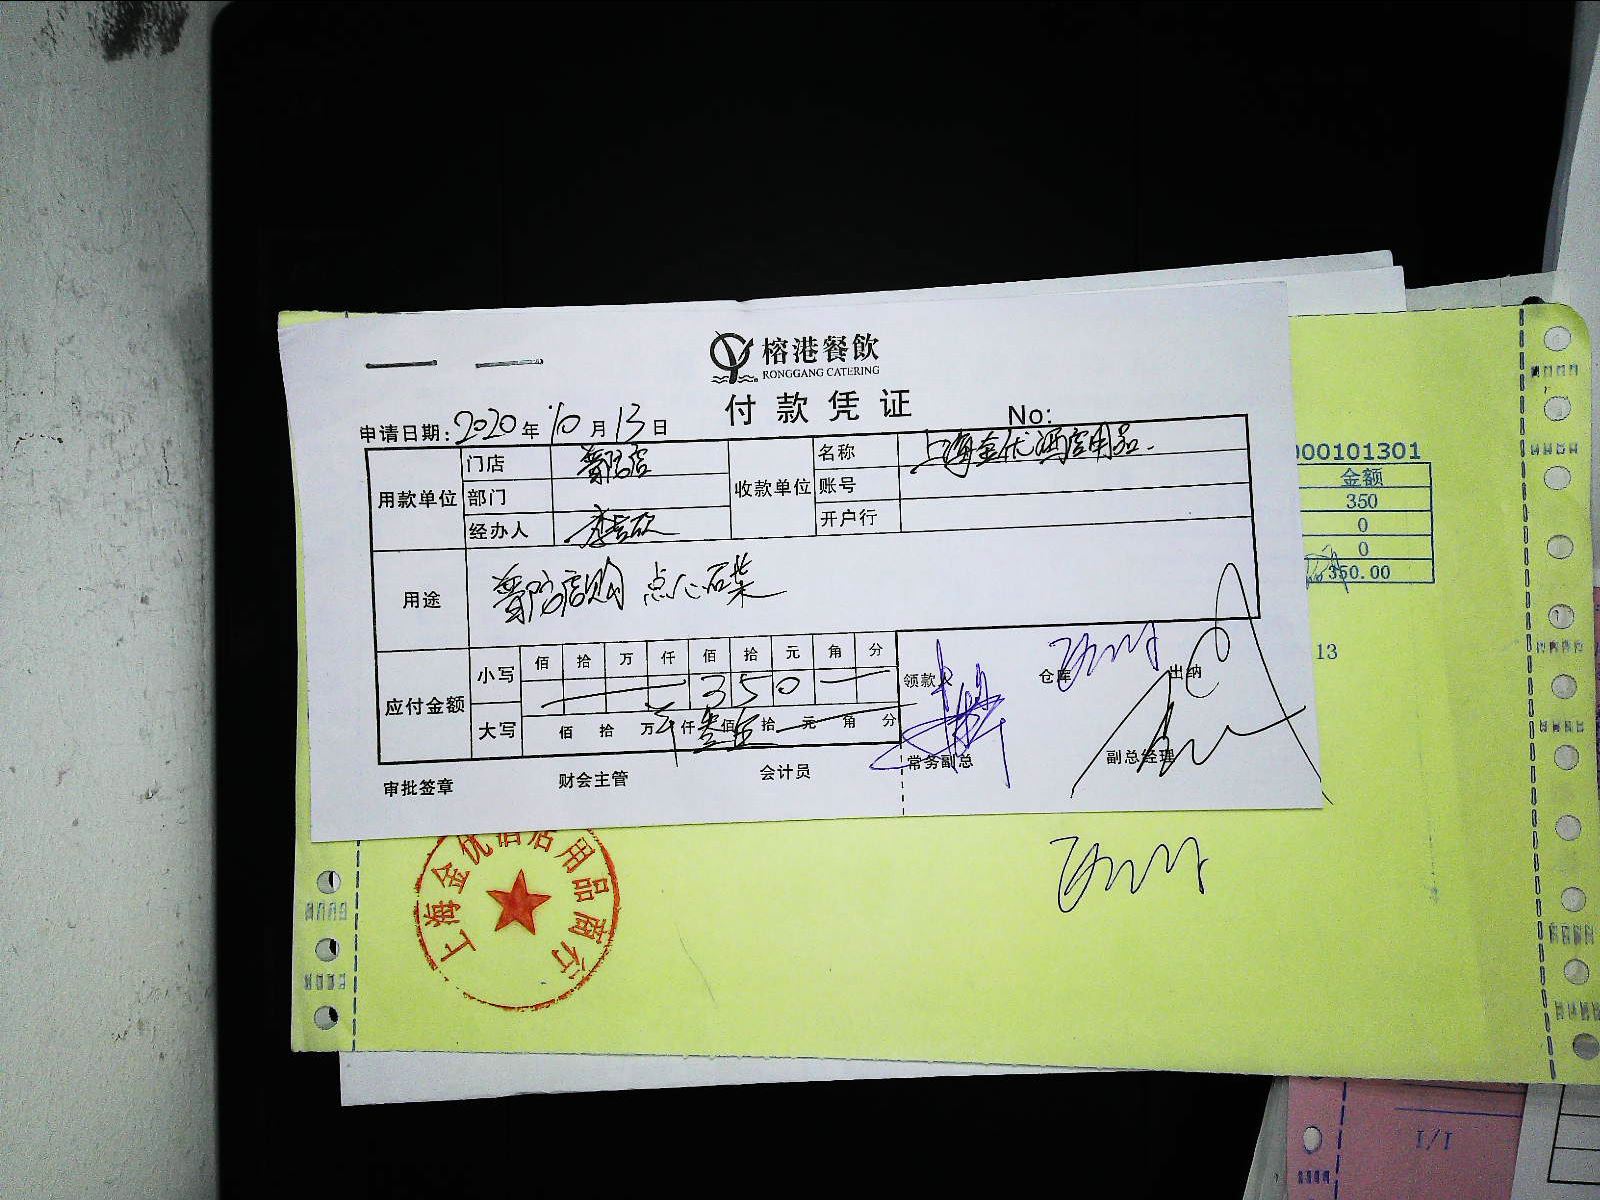 榕港餐飲
RONGGANG CATERING
付款凭证
申请日期: 2020年10月13日 No:
用款单位 门店 普陀店 收款单位 名称 上海金优酒店用品.
部门 账号
经办人 开户行
用途 普陀店购 点心石菜
应付金额 小写 佰 拾 万 仟 佰 拾 元 角 分
3 5 0
大写 佰 拾 万 仟 叁 佰 伍 拾 元 角 分
领款人 仓库 出纳
审批签章 财会主管 会计员 常务副总 副总经理
000101301
金额
350
0
0
350.00
13
上海金优酒店用品商行
1/1